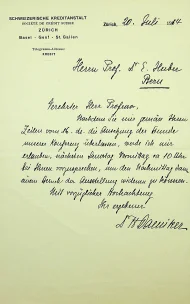 SCHWEIZERISCHE KREDITANSTALT
SOCIÉTÉ DE CRÉDIT SUISSE
ZÜRICH
Basel - Genf - St. Gallen
Telegramm-Adresse:
KREDIT
Zürich, 20. Juli 1914
Herrn Prof. Dr E. Huber
Bern
Verehrter Herr Professor,
Nachdem Sie mir gemäss Ihren
Zeilen vom 16. ds. die Ansetzung der Stunde
unserer Konferenz überlassen, werde ich mir
erlauben, nächsten Samstag Vormittag um 10 Uhr
bei Ihnen vorzusprechen, um den Nachmittag dann
einem Besuch der Ausstellung widmen zu können.
Mit vorzüglicher Hochachtung
Ihr ergebener
Dr